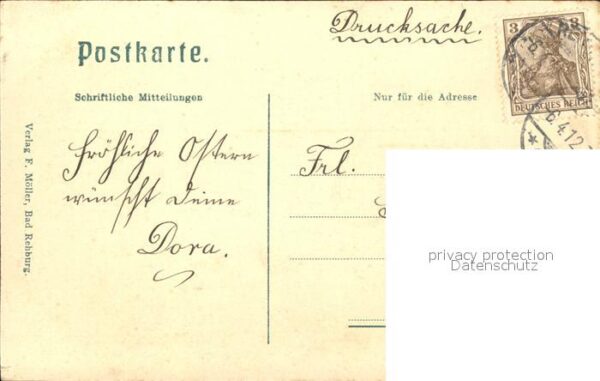 Drucksache.
Postkarte.
3 3
DEUTSCHES REICH
6.4.12.
Schriftliche Mitteilungen
Nur für die Adresse
fröhliche Ostern
wünscht Deine
Dora.
Frl.
Verlag F. Möller, Bad Rehburg.
privacy protection
Datenschutz